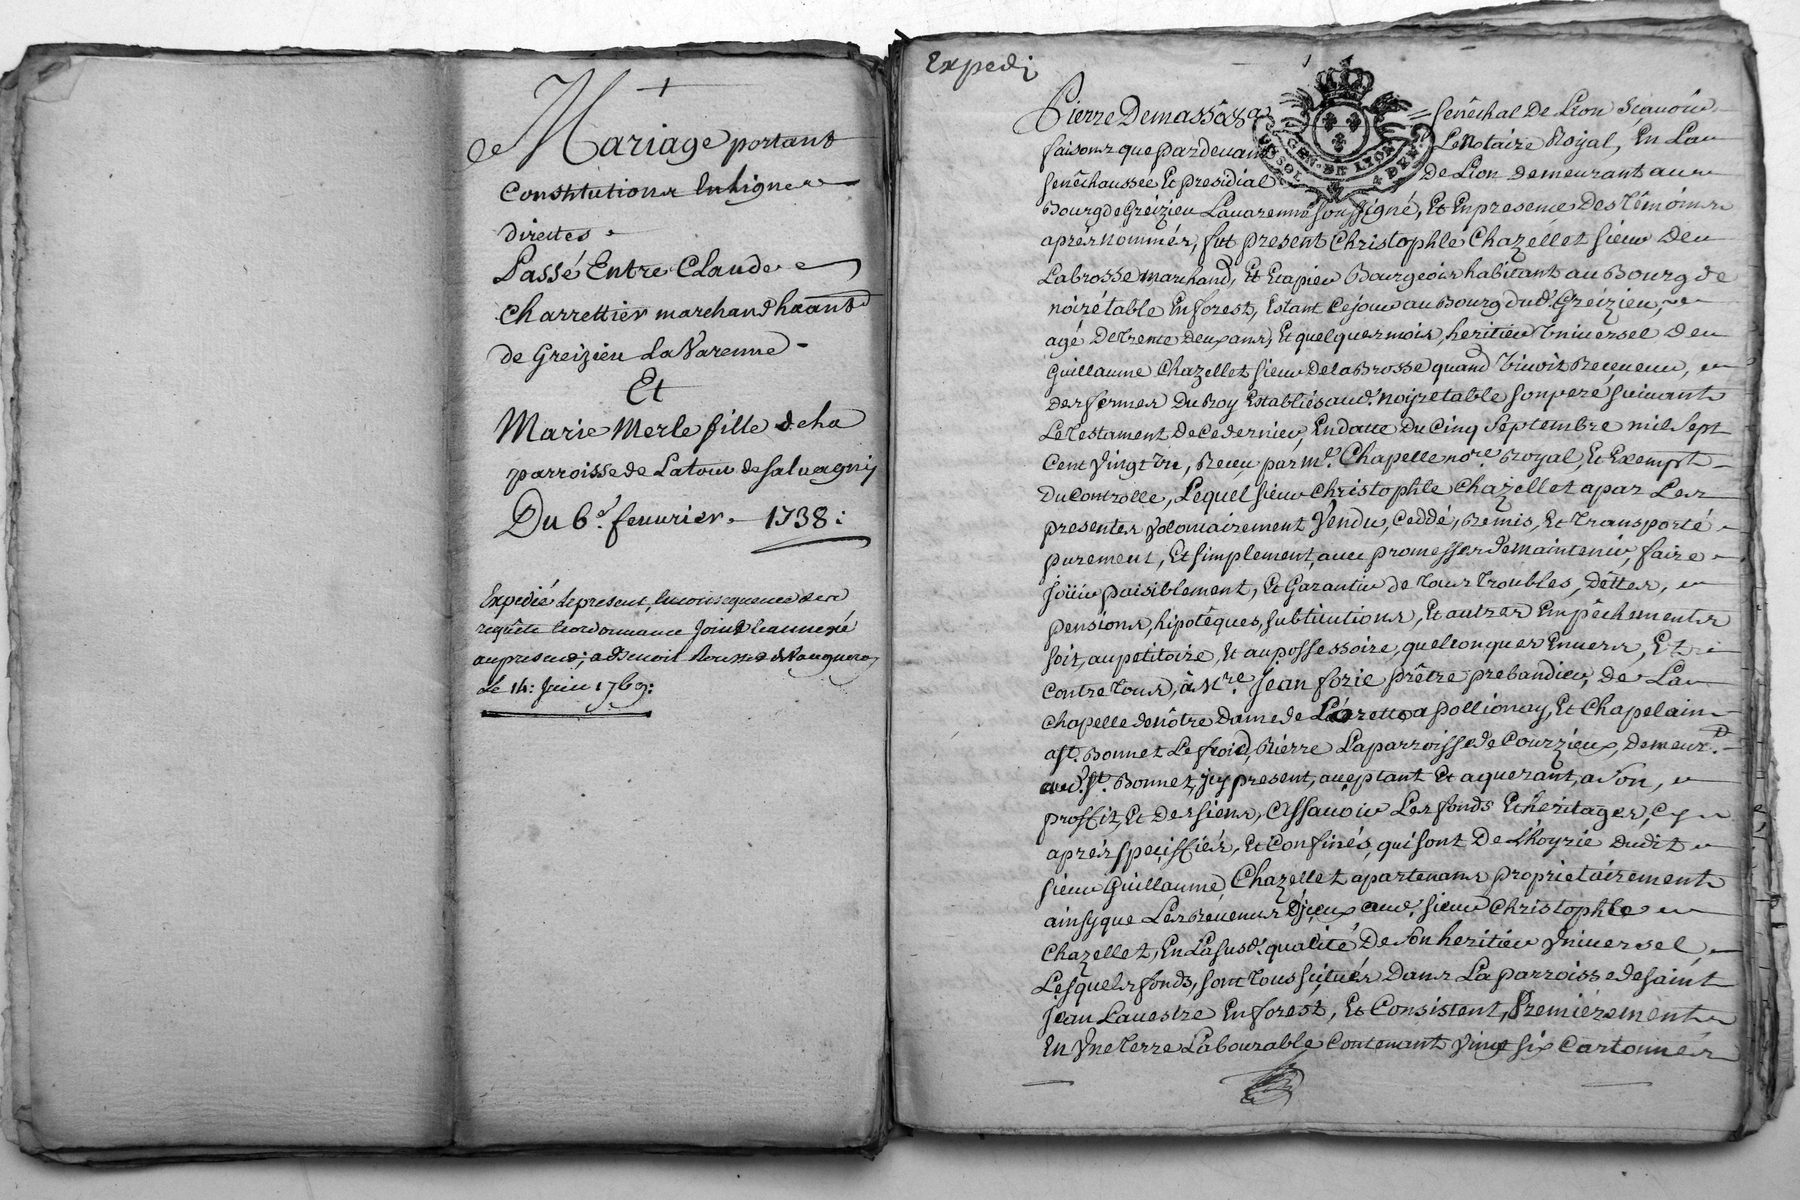 +
de Mariage portant
Constitutions En Ligne
directes.
Passé Entre Claude
Charrettier marchand haânt
de Greizieu La Varenne
Et
Marie Merle fille de la
parroisse de Latour de Salvagny
Du 6.e feuvrier. 1738:
Expedié Le present, En consequence de
requête & ordonnance Jointe & annexé
au present; a Benoit
Le 14: Juin 1769:
Expedi
Pierre Demasso = Senêchal De Lion Scavoir
faisons que pardevant Le Notaire Royal, En La
Senêchaussée Et presidial De Lion demeurant au
GEN. DE LYON
Bourg de Greizieu Lavarenne soussigné, Et En presence Des Têmoins
aprés nommés, fut present Christophle Chazellet sieur De
Labrosse marchand, Et Bourgeois habitant au Bourg de
noirétable En forest, Estant Ce jour au Bourg dud. Greizieu,
agé De Trente deux ans, Et quelques mois, heritier Vniversel De
Guillaume Chazellet sieur De la Brosse quand Vivoit Receveur,
des fermes Du Roy Establies aud. noiretable son pere suivant
Le Testament De Ce dernier, En datte Du Cinq Septembre mil Sept
Cent Vingt Un, Receu par Me. Chapelle nore. Royal, Et Exempt
du Controlle, Lequel sieur Christophle Chazellet a par Les
presentes volontairement Vendu, Ceddé, Remis, Et Transporté
purement, Et simplement, avec promesse de maintenir, faire
Joüir paisiblement, Et Garantir de Tous Troubles, Dêttes,
pensions, hipotêques, substitutions, Et autres Empêchements
soit, au petitoire, Et au possessoire, quelconques Envers, Et
Contre Tous, à Mre. Jean forie prêtre prebandier, De La
Chapelle de nôtre Dame de Lorette a pollionay, Et Chapelain
a St. Bonnet Le froid, Rierre La parroisse de Courzieu, demeurt.
aud. St. Bonnet, Jcy present, aceptant Et aquerant, a Son,
proffit, Et Des siens, Assavoir Les fonds Et héritages, Cy
aprés speciffiés, Et Confinés, qui sont De L'hoyrie Dudit
sieur Guillaume Chazellet apartenans proprietairement
ainsy que Les Revenus D'jceux aud. sieur Christophle
Chazellet, En La susd. qualité De son heritier Vniversel,
Lesquels fonds, sont Tous situés Dans La parroisse de Saint
Jean Lavestre En forest, Et Consistent, Premiérement
En Vne Terre Labourable Contenant Vingt six Cartonnés